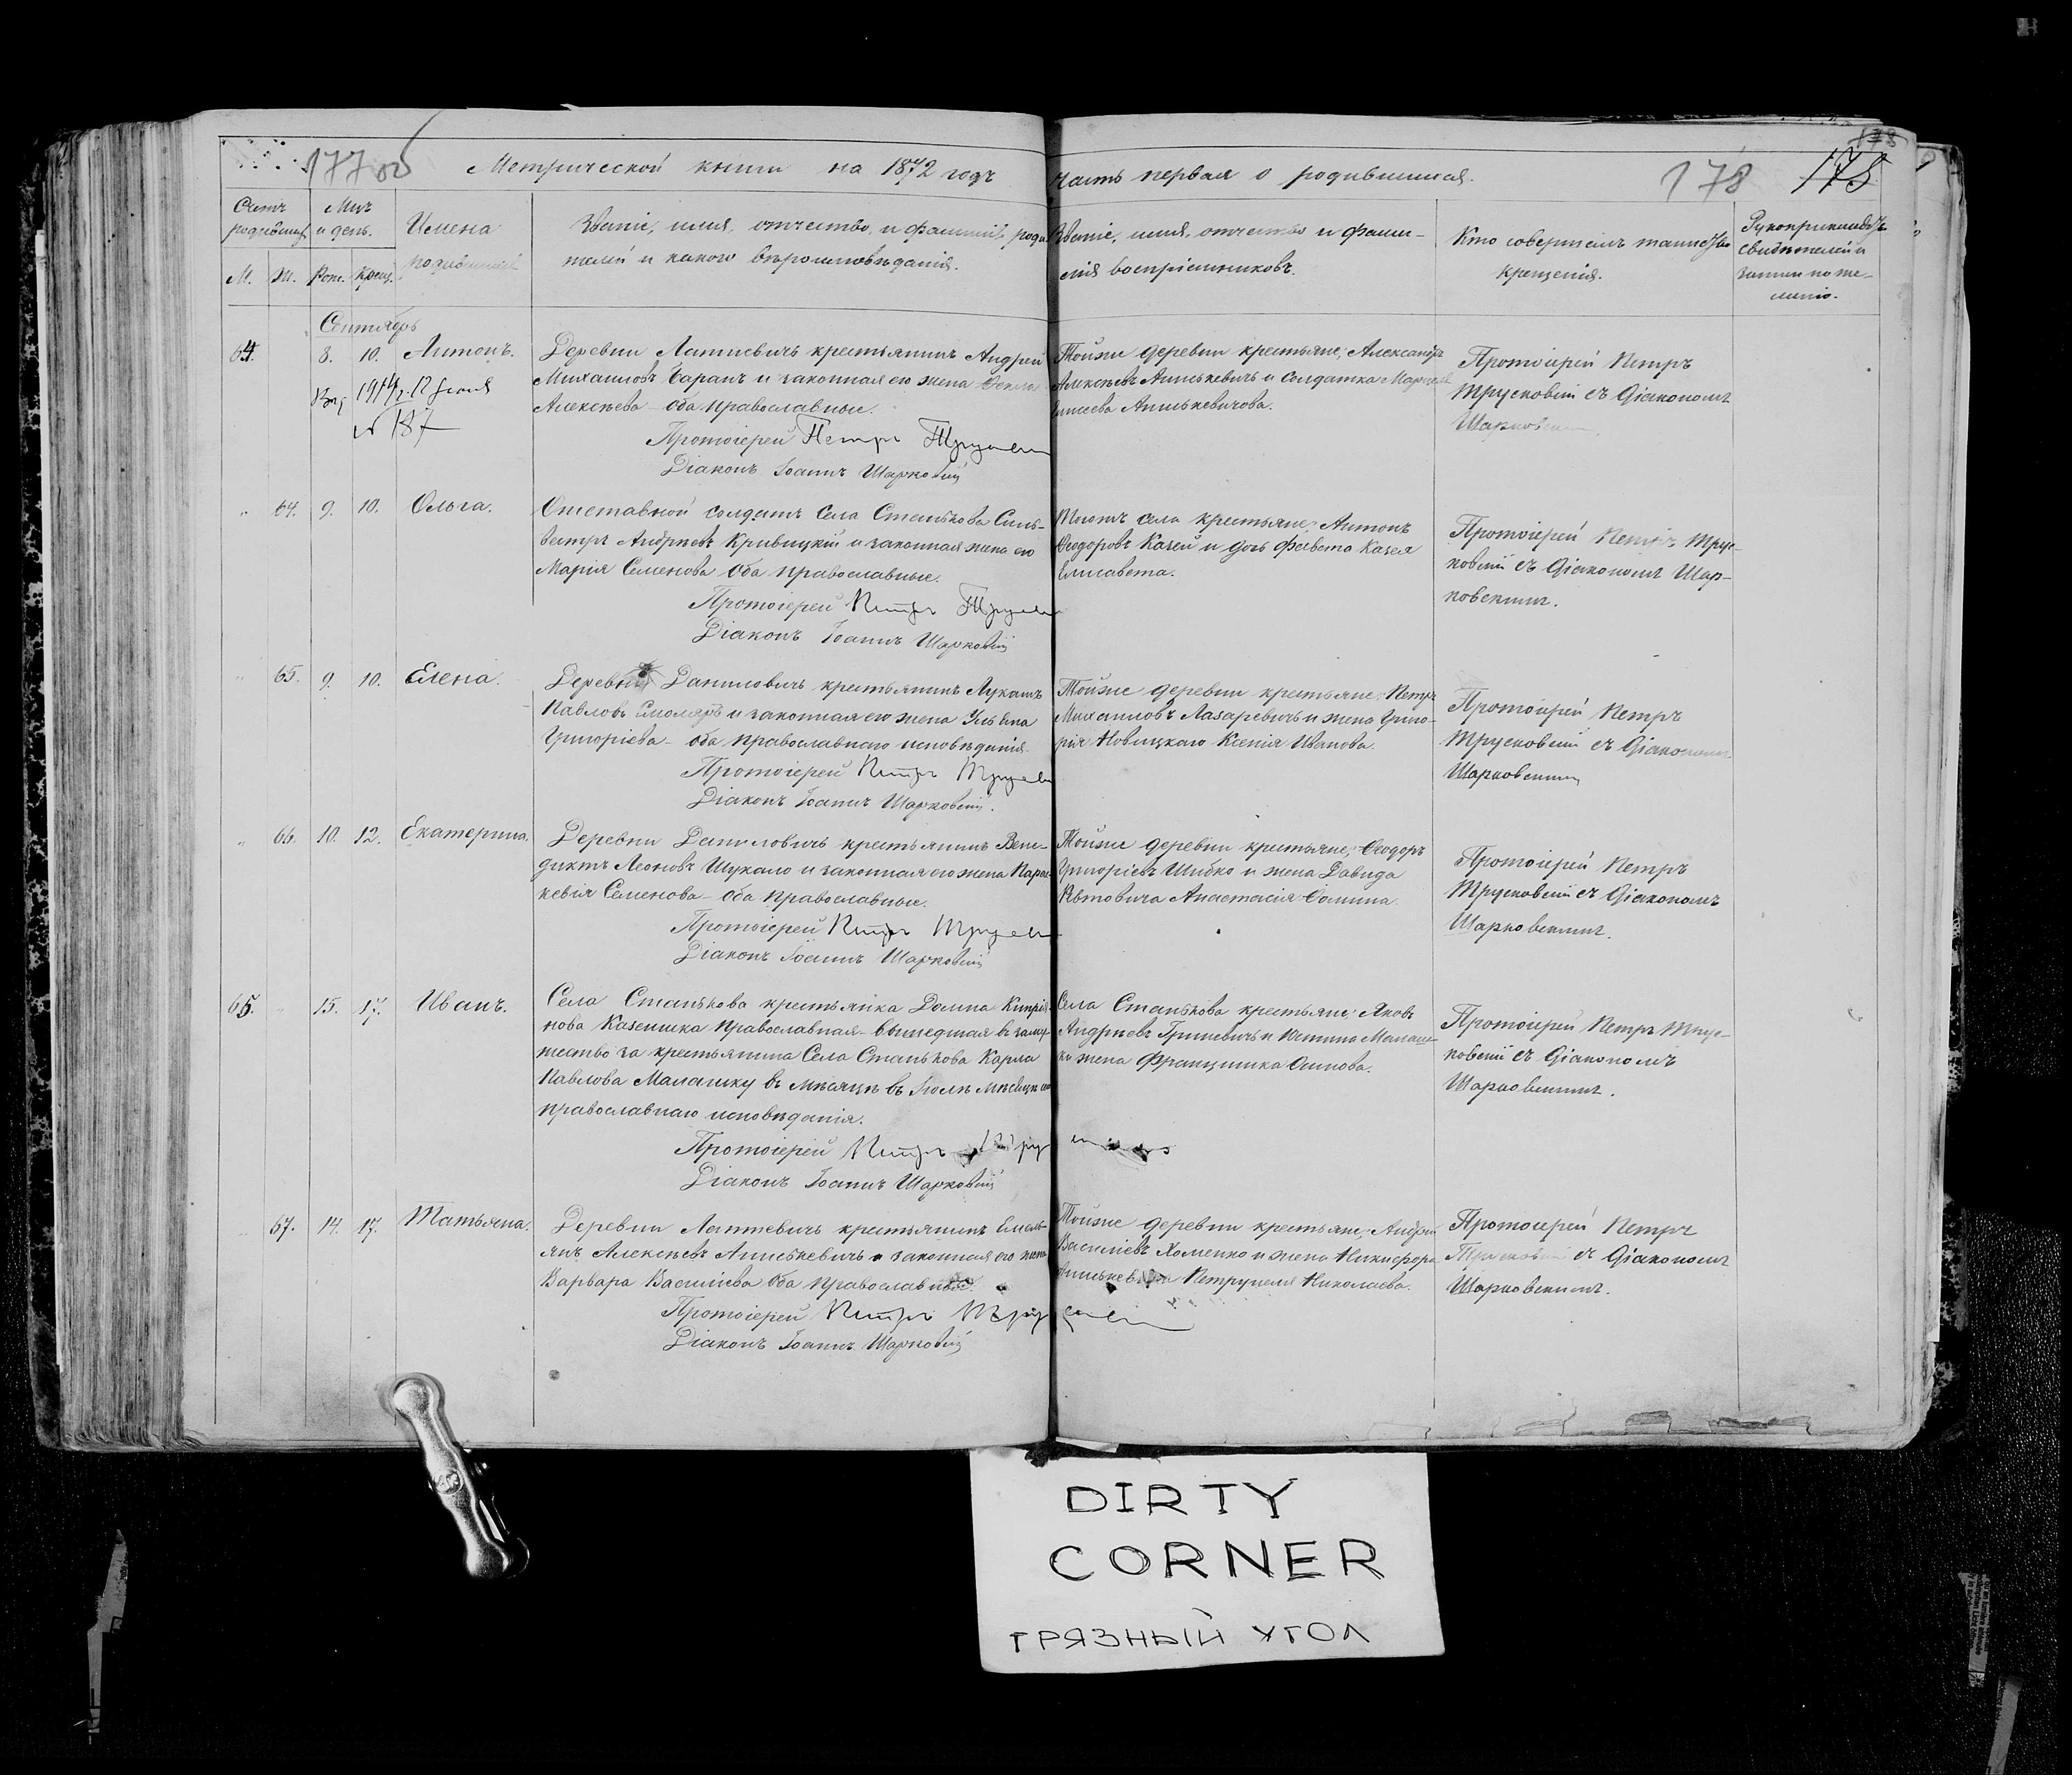 177об
Метрической книги на 1872 годъ
часть первая о родившихся.
178
175
Счетъ родившихся
Мцъ и день.
М.
Ж.
Рож.
Крещ.
Имена родившихся
Званіе, имя, отчество, и фамилія, роди-
телей и какого вѣроисповѣданія.
Званіе, имя, отчество и фами-
лія воспріемниковъ.
Кто совершилъ таинство
крещенія.
Рукоприкладство
свидѣтелей о
записи по же-
ланію.
Сентябрь
64.
8. 10. Антонъ.
1914 г. 12 Іюля
№ 187
Деревни Лаптевичъ крестьянинъ Андрей
Михаиловъ Баранъ и законная его жена Ѳекла
Алексѣева оба православные.
Протоіерей Петръ
Діаконъ Іоаннъ Шарковскій
Тойже деревни крестьяне; Александръ
Алексѣевъ и солдатка

Протоіерей Петръ
Трусковскій съ Діакономъ
64. 9. 10. Ольга.
Отставной солдатъ Села Станькова Силь-
вестръ Андреевъ Кривицкій и законная жена его
Марія Семенова оба православные.
Протоіерей Петръ
Діаконъ Іоаннъ Шарковскій
Тогожъ села крестьяне; Антонъ
Ѳеодоровъ Казей и дочь Казея
Елисавета.
Протоіерей Петръ Трус-
ковскій съ Діакономъ Шар-
ковскимъ.
65. 9. 10. Елена.
Деревни Даниловичъ крестьянинъ Лукашъ
Павловъ Смоляръ и законная его жена Ульяна
Григоріева оба православнаго исповѣданія
Протоіерей Петръ
Діаконъ Іоаннъ Шарковскій.
Тойже деревни крестьяне: Петръ
Михаиловъ Лазаревичъ и жена Григо-
рія Новицкаго Ксенія Иванова.
Протоіерей Петръ
Трусковскій съ Діакономъ
Шарковскимъ
66. 10. 12. Екатерина.
Деревни Даниловичъ крестьянинъ Вене-
диктъ Леоновъ Шукало и законная его жена Парас-
кевія Семенова оба православные.
Протоіерей Петръ
Діаконъ Іоаннъ Шарковскій
Тойже деревни крестьяне; Ѳеодоръ
Григоріевъ Шибко и жена Давида
Анастасія Ѳомина.
Протоіерей Петръ
Трусковскій съ Діакономъ
Шарковскимъ.
65. 15. 17. Иванъ.
Села Станькова крестьянка Домна Кипріа-
нова православная вышедшая въ заму-
жество за крестьянина Села Станькова Карла
Павлова въ мѣсяцѣ въ Іюлѣ мѣсяцѣ
православнаго исповѣданія.
Протоіерей Петръ
Діаконъ Іоаннъ Шарковскій
Села Станькова крестьяне; Яковъ
Андреевъ Гриневичъ и
жена Францишка Осипова.
Протоіерей Петръ Трус-
ковскій съ Діакономъ
Шарковскимъ.
67. 14. 17. Татьяна.
Деревни Лаптевичъ крестьянинъ Емель-
янъ Алексѣевъ и законная его жена
Варвара Васильева оба православные.
Протоіерей Петръ
Діаконъ Іоаннъ Шарковскій
Тойже деревни крестьяне; Андрей
Василіевъ Хоменко и жена Никифора
Петрунеля Николаева.
Протоіерей Петръ
съ Діакономъ
Шарковскимъ.
DIRTY
CORNER
ГРЯЗНЫЙ УГОЛ